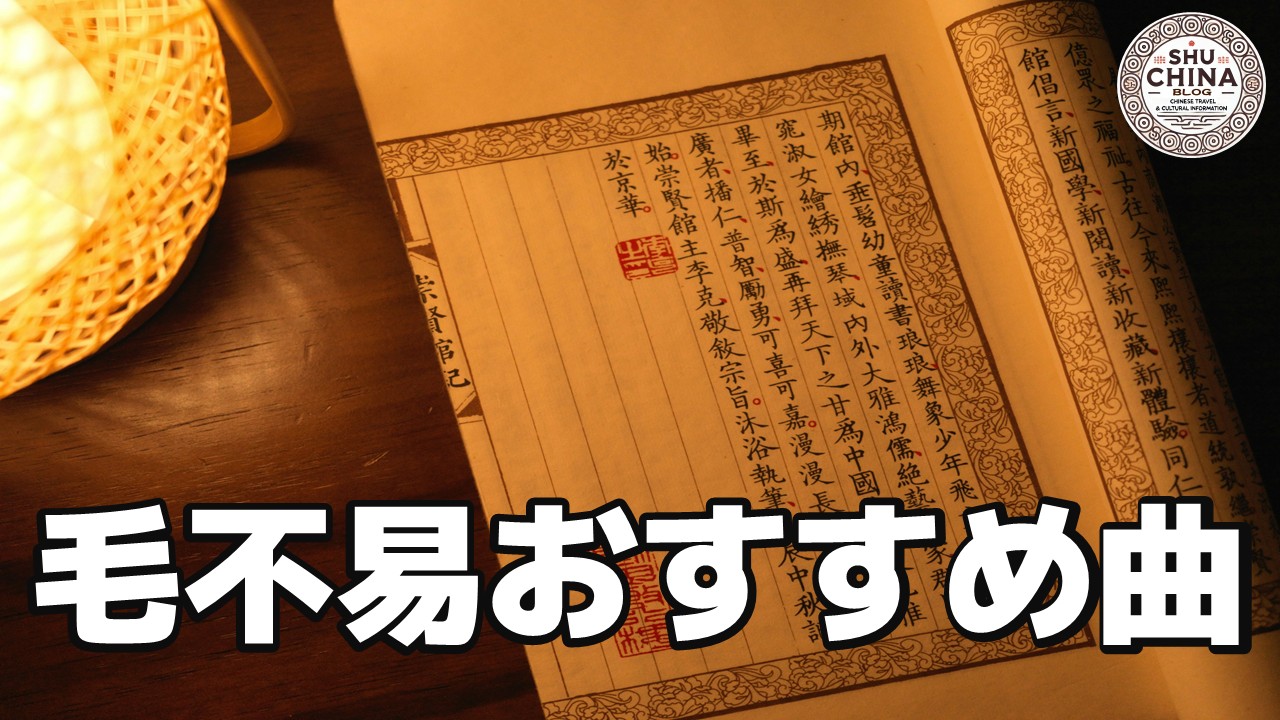 毛不易おすすめ曲
SHU
CHINA
BLOG
CHINESE TRAVEL
& CULTURAL INFORMATION
億眾之福祉、古往今來熙熙攘攘者、道統孰繼
館倡言、新國學、新閱讀、新收藏、新體驗。同仁
期館內、垂髫幼童讀書琅琅、舞象少年飛
窕淑女繪綉撫琴、域內外大雅鴻儒、絕藝
畢至、於斯爲盛、再拜天下之甘爲中國
廣者、播仁、普智、勵勇、可喜可嘉。漫漫長
始、崇賢館主李克敬敘宗旨。沐浴執筆、辰中秋謹
於京華。
崇賢館記